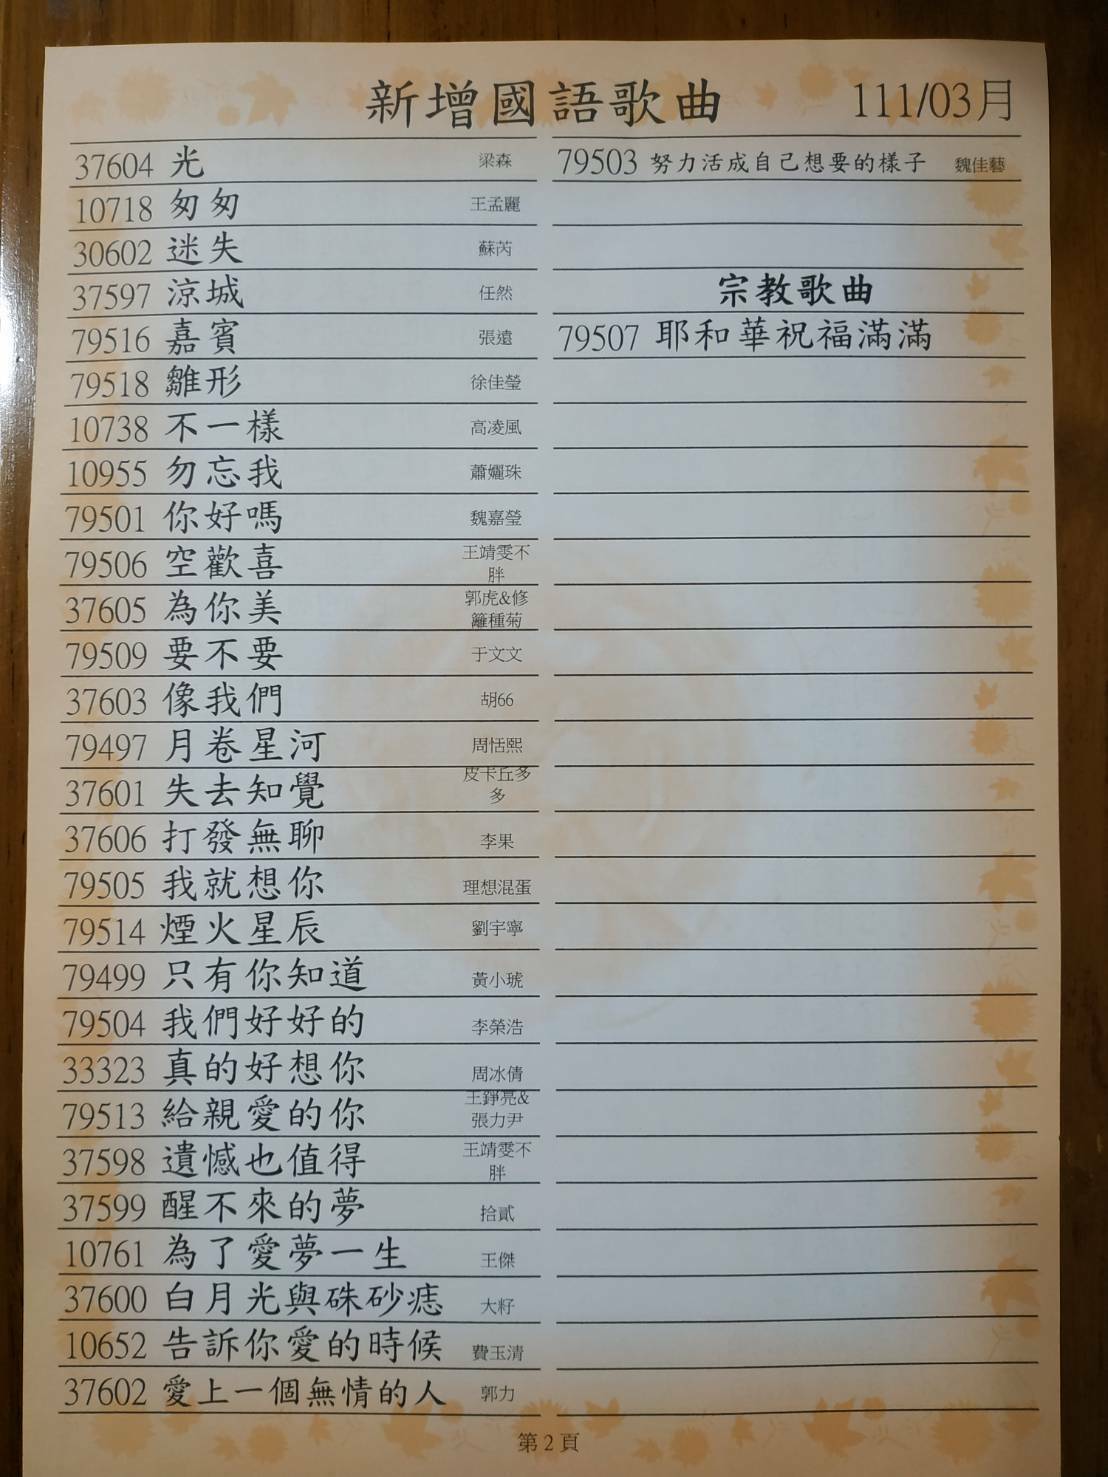 新增國語歌曲 111/03月
37604 光 梁森
10718 匆匆 王孟麗
30602 迷失 蘇芮
37597 涼城 任然
79516 嘉賓 張遠
79518 雛形 徐佳瑩
10738 不一樣 高凌風
10955 勿忘我 蕭孋珠
79501 你好嗎 魏嘉瑩
79506 空歡喜 王靖雯不
胖
37605 為你美 郭虎&修
籬種菊
79509 要不要 于文文
37603 像我們 胡66
79497 月卷星河 周恬熙
37601 失去知覺 皮卡丘多
多
37606 打發無聊 李果
79505 我就想你 理想混蛋
79514 煙火星辰 劉宇寧
79499 只有你知道 黃小琥
79504 我們好好的 李榮浩
33323 真的好想你 周冰倩
79513 給親愛的你 王錚亮&
張力尹
37598 遺憾也值得 王靖雯不
胖
37599 醒不來的夢 拾貳
10761 為了愛夢一生 王傑
37600 白月光與硃砂痣 大籽
10652 告訴你愛的時候 費玉清
37602 愛上一個無情的人 郭力
79503 努力活成自己想要的樣子 魏佳藝
宗教歌曲
79507 耶和華祝福滿滿
第2頁